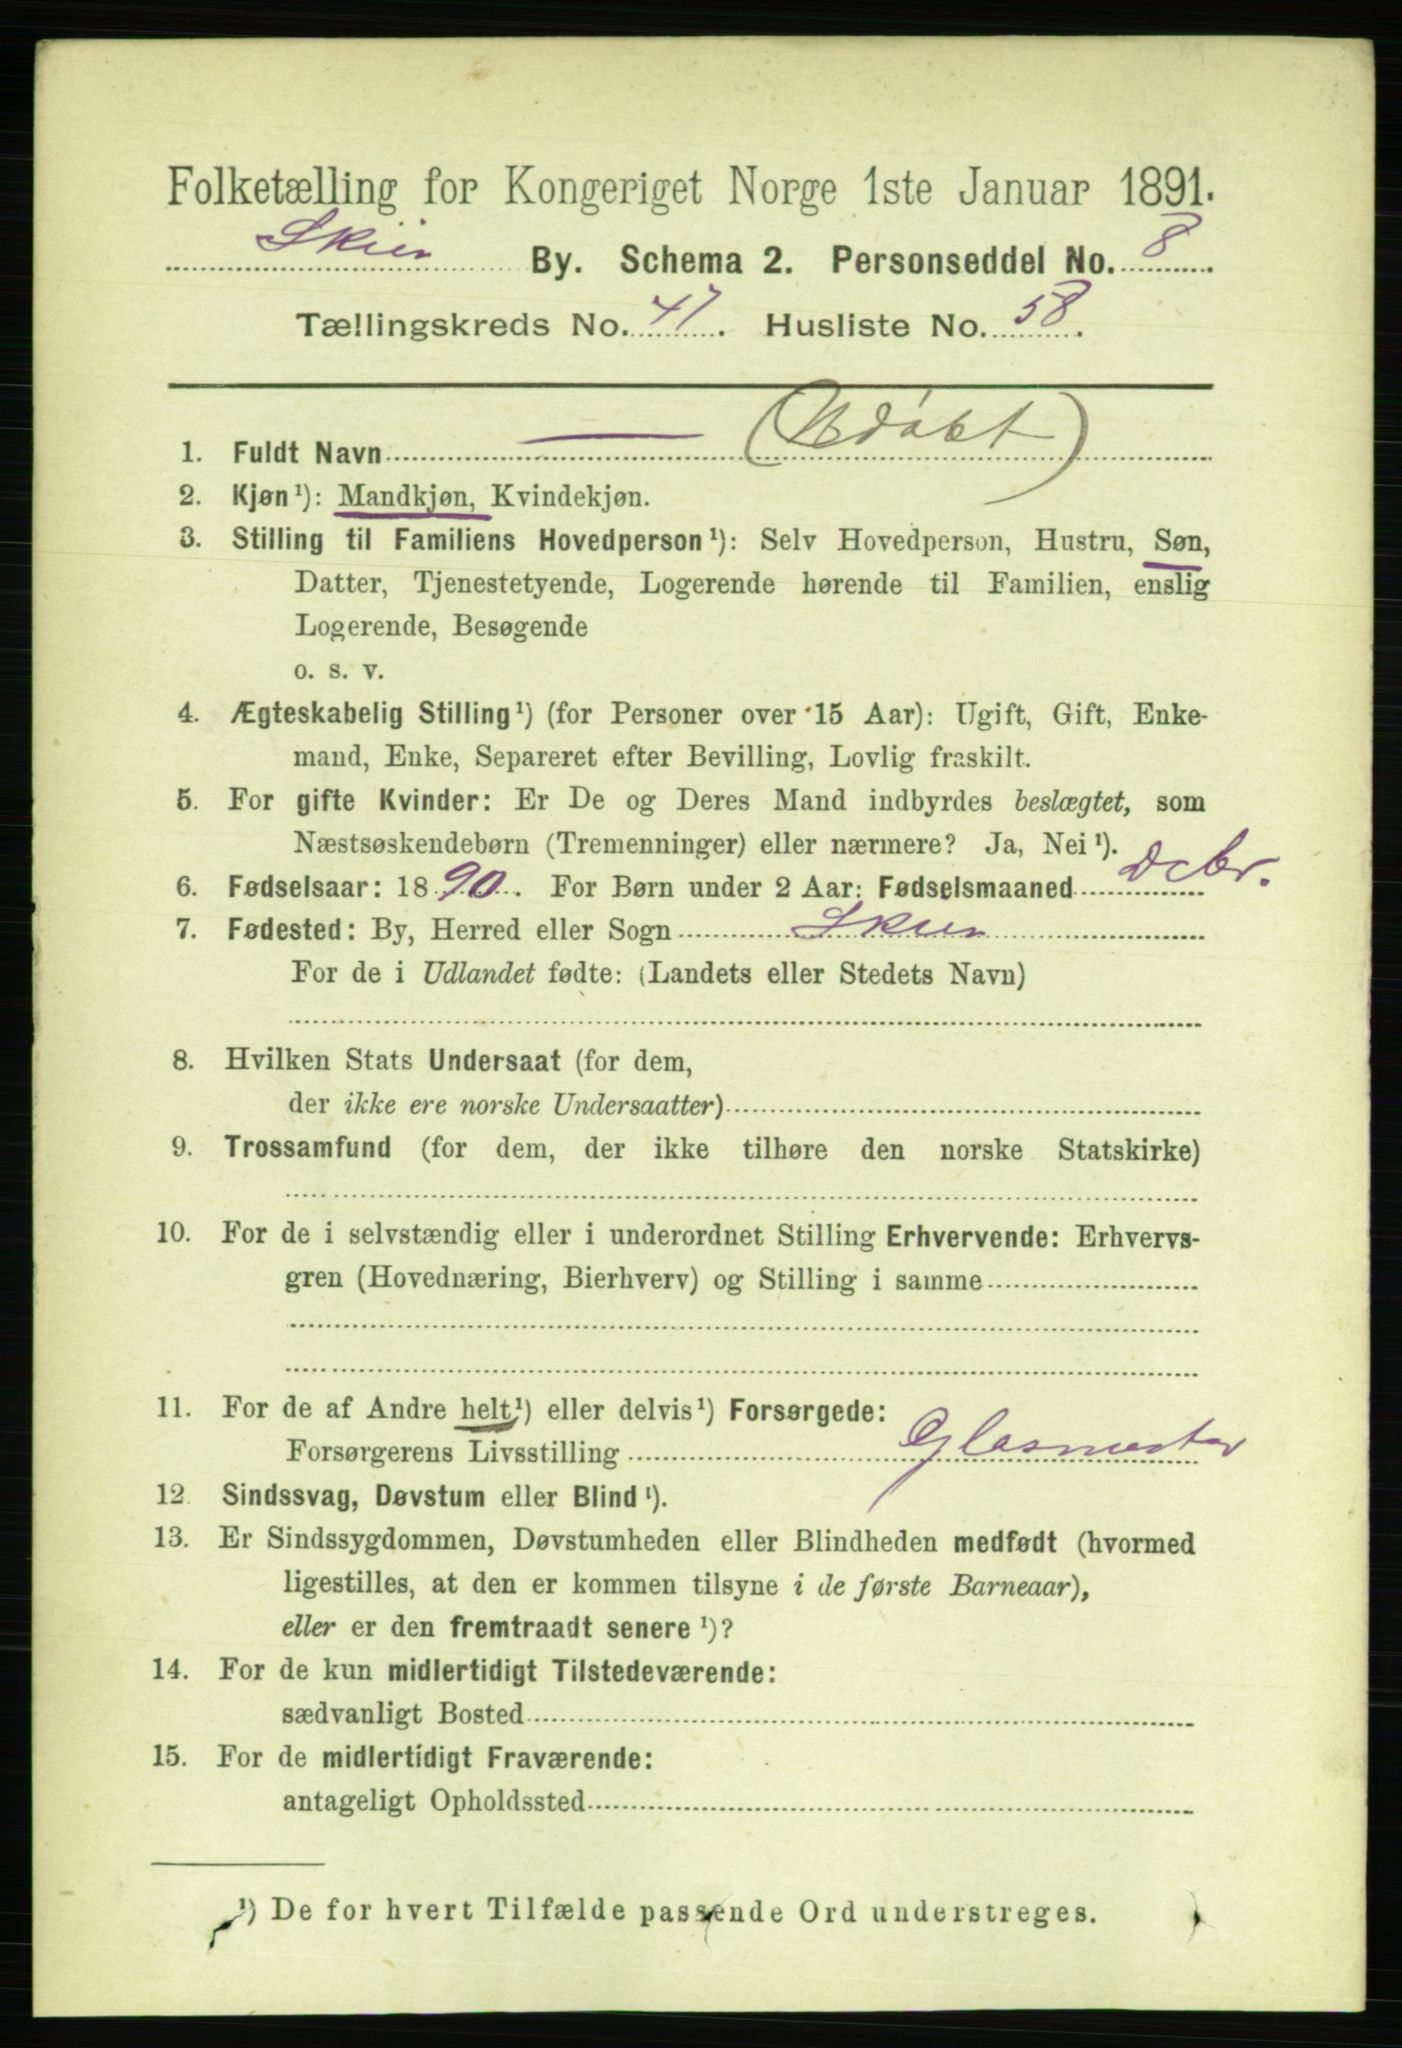 Folketælling for Kongeriget Norge 1ste Januar 1891.
Skien By. Schema 2. Personseddel No. 8
Tællingskreds No. 47. Husliste No. 58.
1. Fuldt Navn (Udøbt)
2. Kjøn ¹): Mandkjøn, Kvindekjøn.
3. Stilling til Familiens Hovedperson ¹): Selv Hovedperson, Hustru, Søn,
Datter, Tjenestetyende, Logerende hørende til Familien, enslig
Logerende, Besøgende
o. s. v.
4. Ægteskabelig Stilling ¹) (for Personer over 15 Aar): Ugift, Gift, Enke-
mand, Enke, Separeret efter Bevilling, Lovlig fraskilt.
5. For gifte Kvinder: Er De og Deres Mand indbyrdes beslægtet, som
Næstsøskendebørn (Tremenninger) eller nærmere? Ja, Nei ¹).
6. Fødselsaar: 1890. For Børn under 2 Aar: Fødselsmaaned Dcbr.
7. Fødested: By, Herred eller Sogn Skien
For de i Udlandet fødte: (Landets eller Stedets Navn)
8. Hvilken Stats Undersaat (for dem,
der ikke ere norske Undersaatter)
9. Trossamfund (for dem, der ikke tilhøre den norske Statskirke)
10. For de i selvstændig eller i underordnet Stilling Erhvervende: Erhvervs-
gren (Hovednæring, Bierhverv) og Stilling i samme
11. For de af Andre helt ¹) eller delvis ¹) Forsørgede:
Forsørgerens Livsstilling Glasmester
12. Sindssvag, Døvstum eller Blind ¹).
13. Er Sindssygdommen, Døvstumheden eller Blindheden medfødt (hvormed
ligestilles, at den er kommen tilsyne i de første Barneaar),
eller er den fremtraadt senere ¹)?
14. For de kun midlertidigt Tilstedeværende:
sædvanligt Bosted
15. For de midlertidigt Fraværende:
antageligt Opholdssted
¹) De for hvert Tilfælde passende Ord understreges.